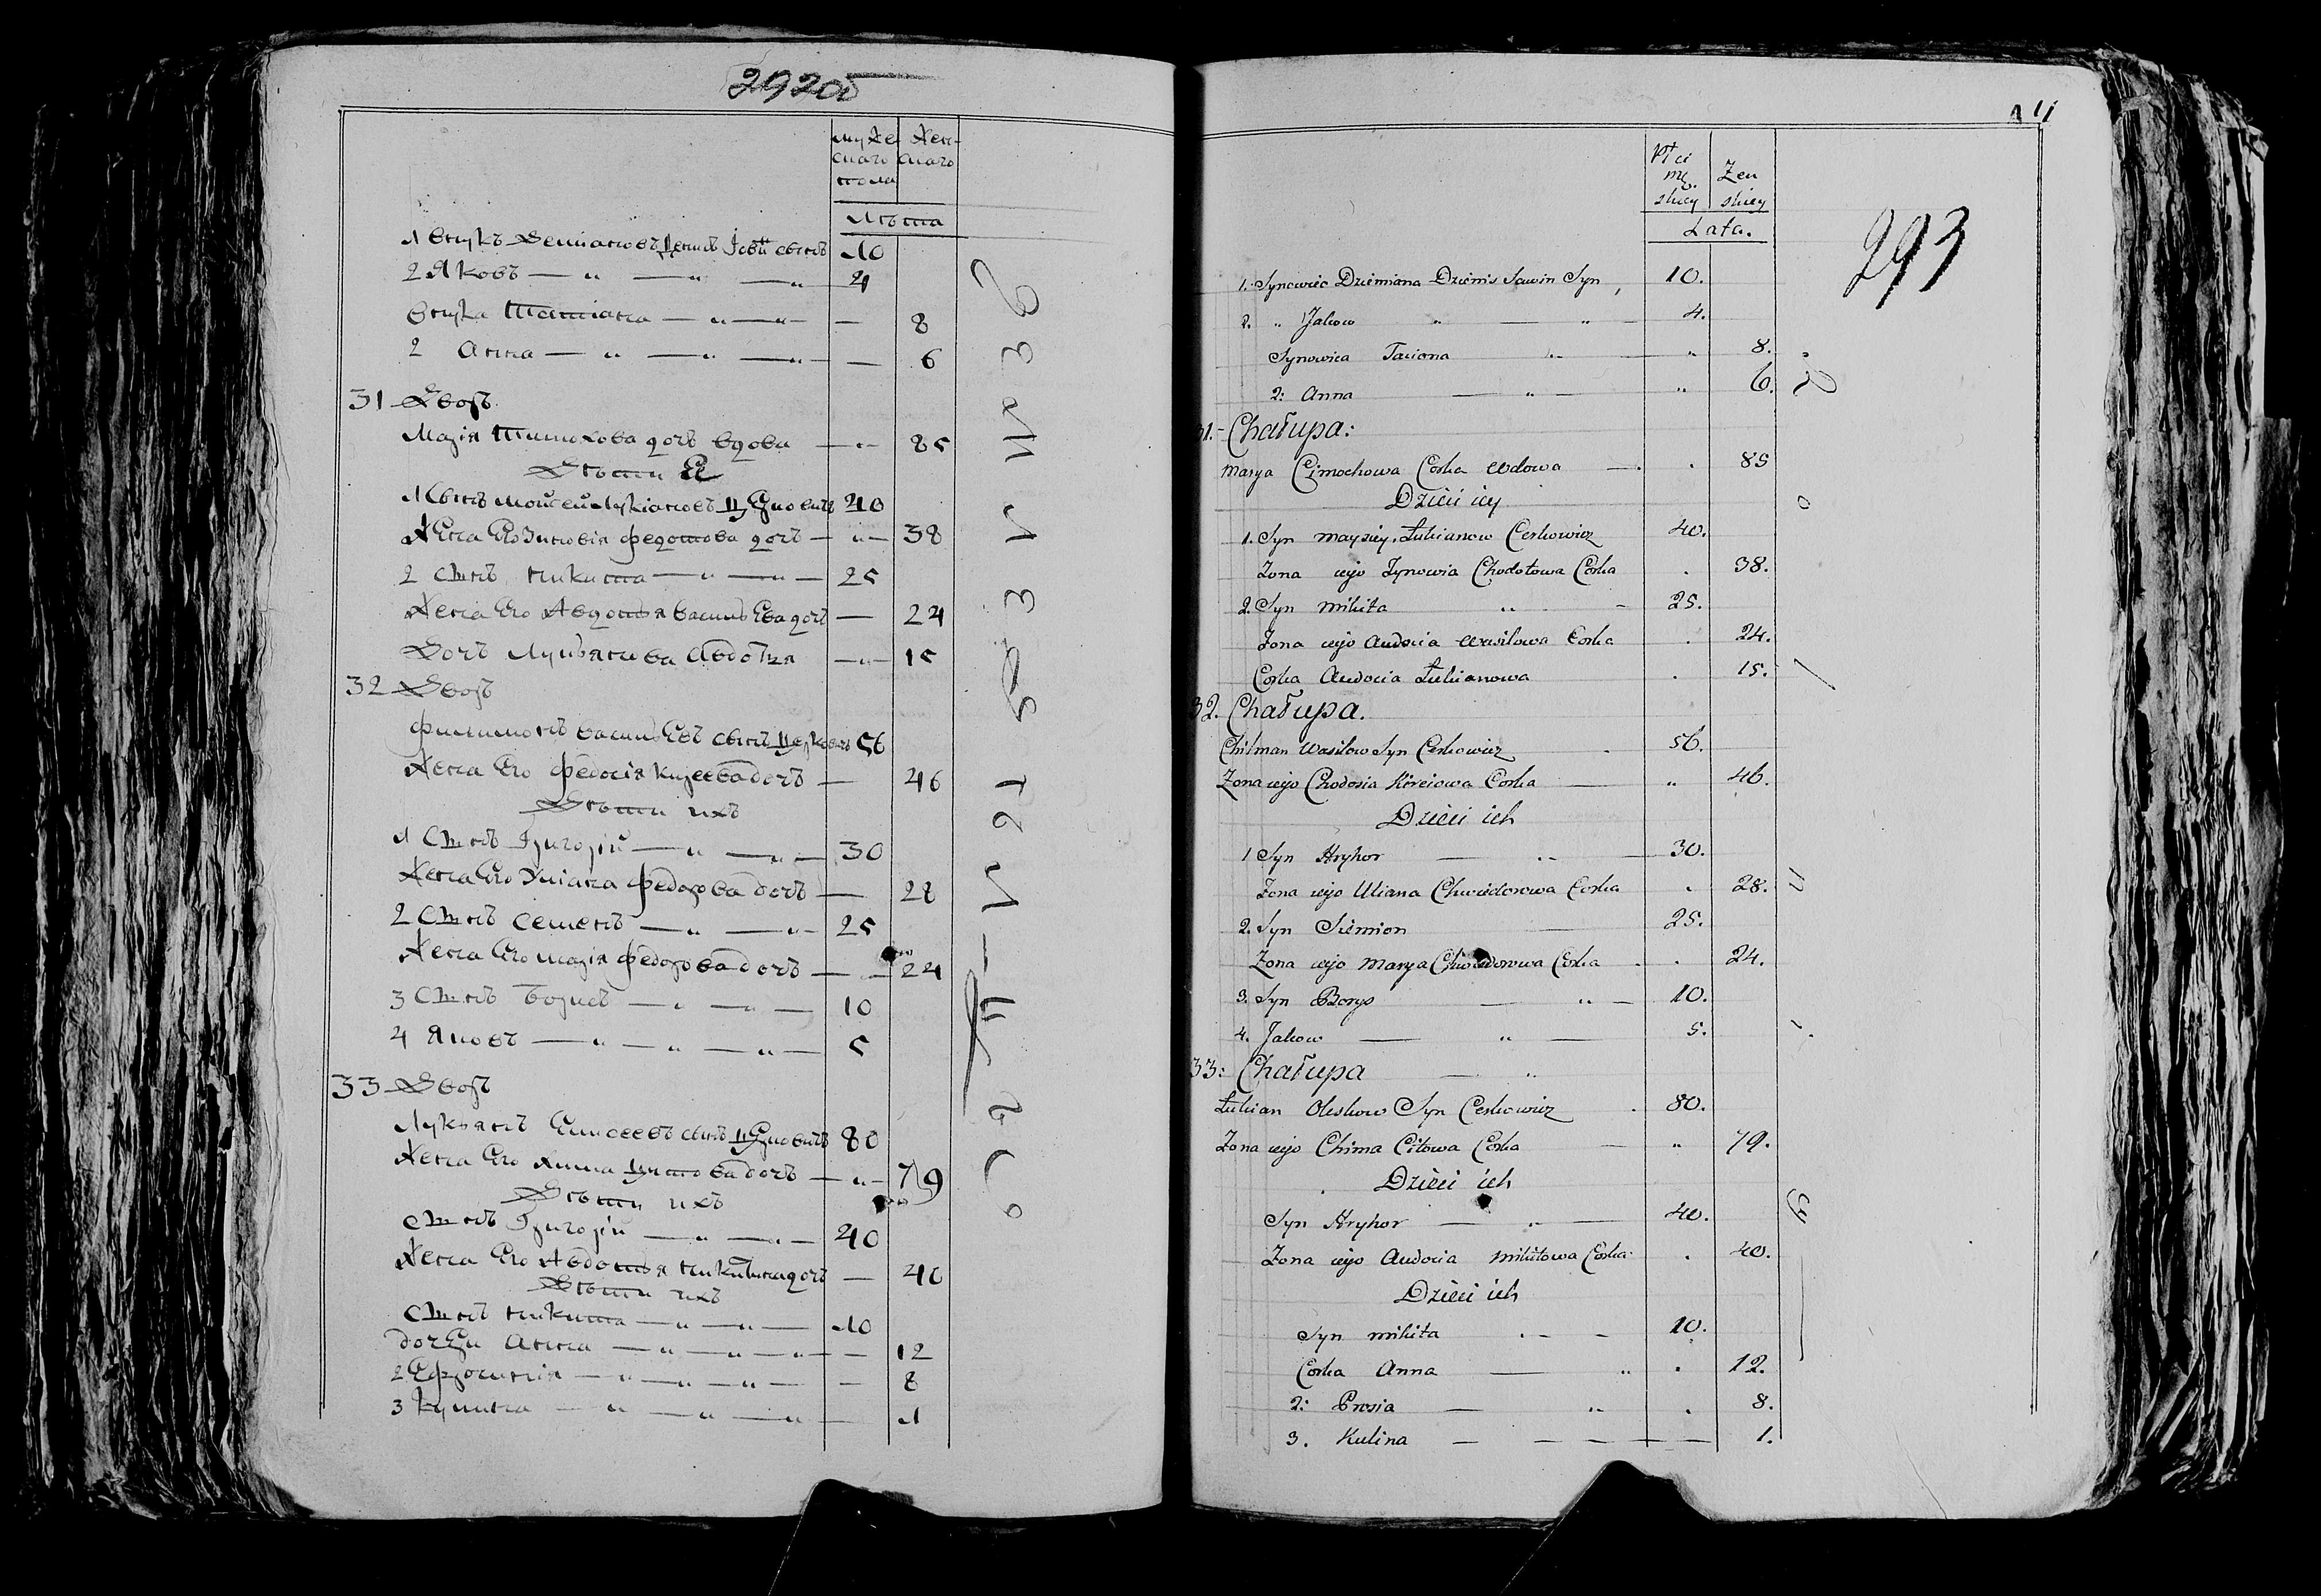 292об
муже
скаго
пола
Жен-
скаго
Лѣта
1 внукъ Демьяновъ Денисъ Савинъ сынъ 10
2 Яковъ — „ — „ — „ 4
внука Татiана — „ — „ — — 8
2 Анна — „ — „ — „ — 6
31 Дворъ
Марiя Тимохова дочь вдова — „ — 85
Дѣти Ея
1 Сынъ Моисей Лукiановъ 40
Жена Его Зиновiя Федотова дочь — „ — 38
2 Сынъ Никита — „ — „ — 25
Жена Его Авдотья Васильева дочь — 24
Дочь Лукьянова Авдотья — „ — 15
32 Дворъ
Филимонъ Васильевъ сынъ 56
Жена Его Федосiя Киреева дочь — 46
Дѣти ихъ
1 Сынъ Григорiй — „ — „ — 30
Жена Его Улiана Федорова дочь — 28
2 Сынъ Семенъ — „ — „ — 25
Жена Его Марiя Федорова дочь — — 24
3 Сынъ Борисъ — „ — „ — 10
4 Яковъ — „ — „ — „ — 5
33 Дворъ
Лукьянъ Елисеевъ сынъ 80
Жена Его Хима Титова дочь — „ — 79
Дѣти ихъ
Сынъ Григорiй — „ — „ — 40
Жена Его Авдотья Никитина дочь — 40
Дѣти ихъ
Сынъ Никита — „ — „ — 10
дочери Анна — „ — „ — „ — — 12
2 Ефросинiя — „ — „ — „ — — 8
3 Кулина — „ — „ — „ — 1
11
293
Płci
mę.
skiey
Żen
skiey
Lata.
1. Synowiec Dziemiana Dzienis Sawin Syn, 10.
2. „ Jakow „ — „ — 4.
Synowica Taciana „ — „ 8.
2: Anna — „ — „ 6.
31. Chałupa:
Marya Cimochowa Corka wdowa — . . 85
Dzieci iey
1. Syn Maysiey Łukianow Cerkowicz 40.
Zona iego Zynowia Chodotowa Corka . 38.
2. Syn Mikita „ — 25.
Zona iego Audocia Wasilowa Corka . 24.
Corka Audocia Łukianowa . 15.
32. Chałupa.
Chilman Wasilow Syn Cerkowicz . 56.
Zona iego Chodosia Kireiowa Corka — „ 46.
Dzieci ich
1 Syn Hryhor — „ — 30.
Zona iego Uliana Chwiedorowa Corka . 28.
2. Syn Siemion — 25.
Zona iego Marya Chwiedorowa Corka . . 24.
3. Syn Borys — „ — 10.
4. Jakow — „ — 5.
33: Chałupa — „
Łukian Oleskow Syn Cerkowicz . 80.
Zona iego Chima Citowa Corka — „ 79.
Dzieci ich
Syn Hryhor — „ — 40.
Zona iego Audocia Mikitowa Corka . 40.
Dzieci ich
Syn Mikita . - - 10.
Corka Anna — „ . 12.
2: Prosia — „ . 8.
3. Kulina — — — — — 1.